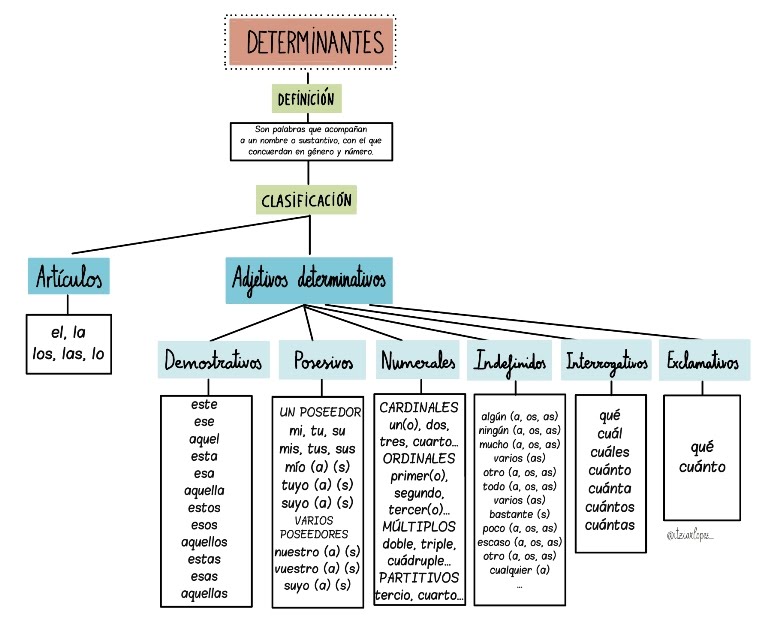 DETERMINANTES
DEFINICIÓN
Son palabras que acompañan
a un nombre o sustantivo, con el que
concuerdan en género y número.
CLASIFICACIÓN
Artículos
el, la
los, las, lo
Adjetivos determinativos
Demostrativos
este
ese
aquel
esta
esa
aquella
estos
esos
aquellos
estas
esas
aquellas
Posesivos
UN POSEEDOR
mi, tu, su
mis, tus, sus
mío (a) (s)
tuyo (a) (s)
suyo (a) (s)
VARIOS
POSEEDORES
nuestro (a) (s)
vuestro (a) (s)
suyo (a) (s)
Numerales
CARDINALES
un(o), dos,
tres, cuarto...
ORDINALES
primer(o),
segundo,
tercer(o)...
MÚLTIPLOS
doble, triple,
cuádruple...
PARTITIVOS
tercio, cuarto...
Indefinidos
algún (a, os, as)
ningún (a, os, as)
mucho (a, os, as)
varios (as)
otro (a, os, as)
todo (a, os, as)
varios (as)
bastante (s)
poco (a, os, as)
escaso (a, os, as)
otro (a, os, as)
cualquier (a)
...
Interrogativos
qué
cuál
cuáles
cuánto
cuánta
cuántos
cuántas
Exclamativos
qué
cuánto